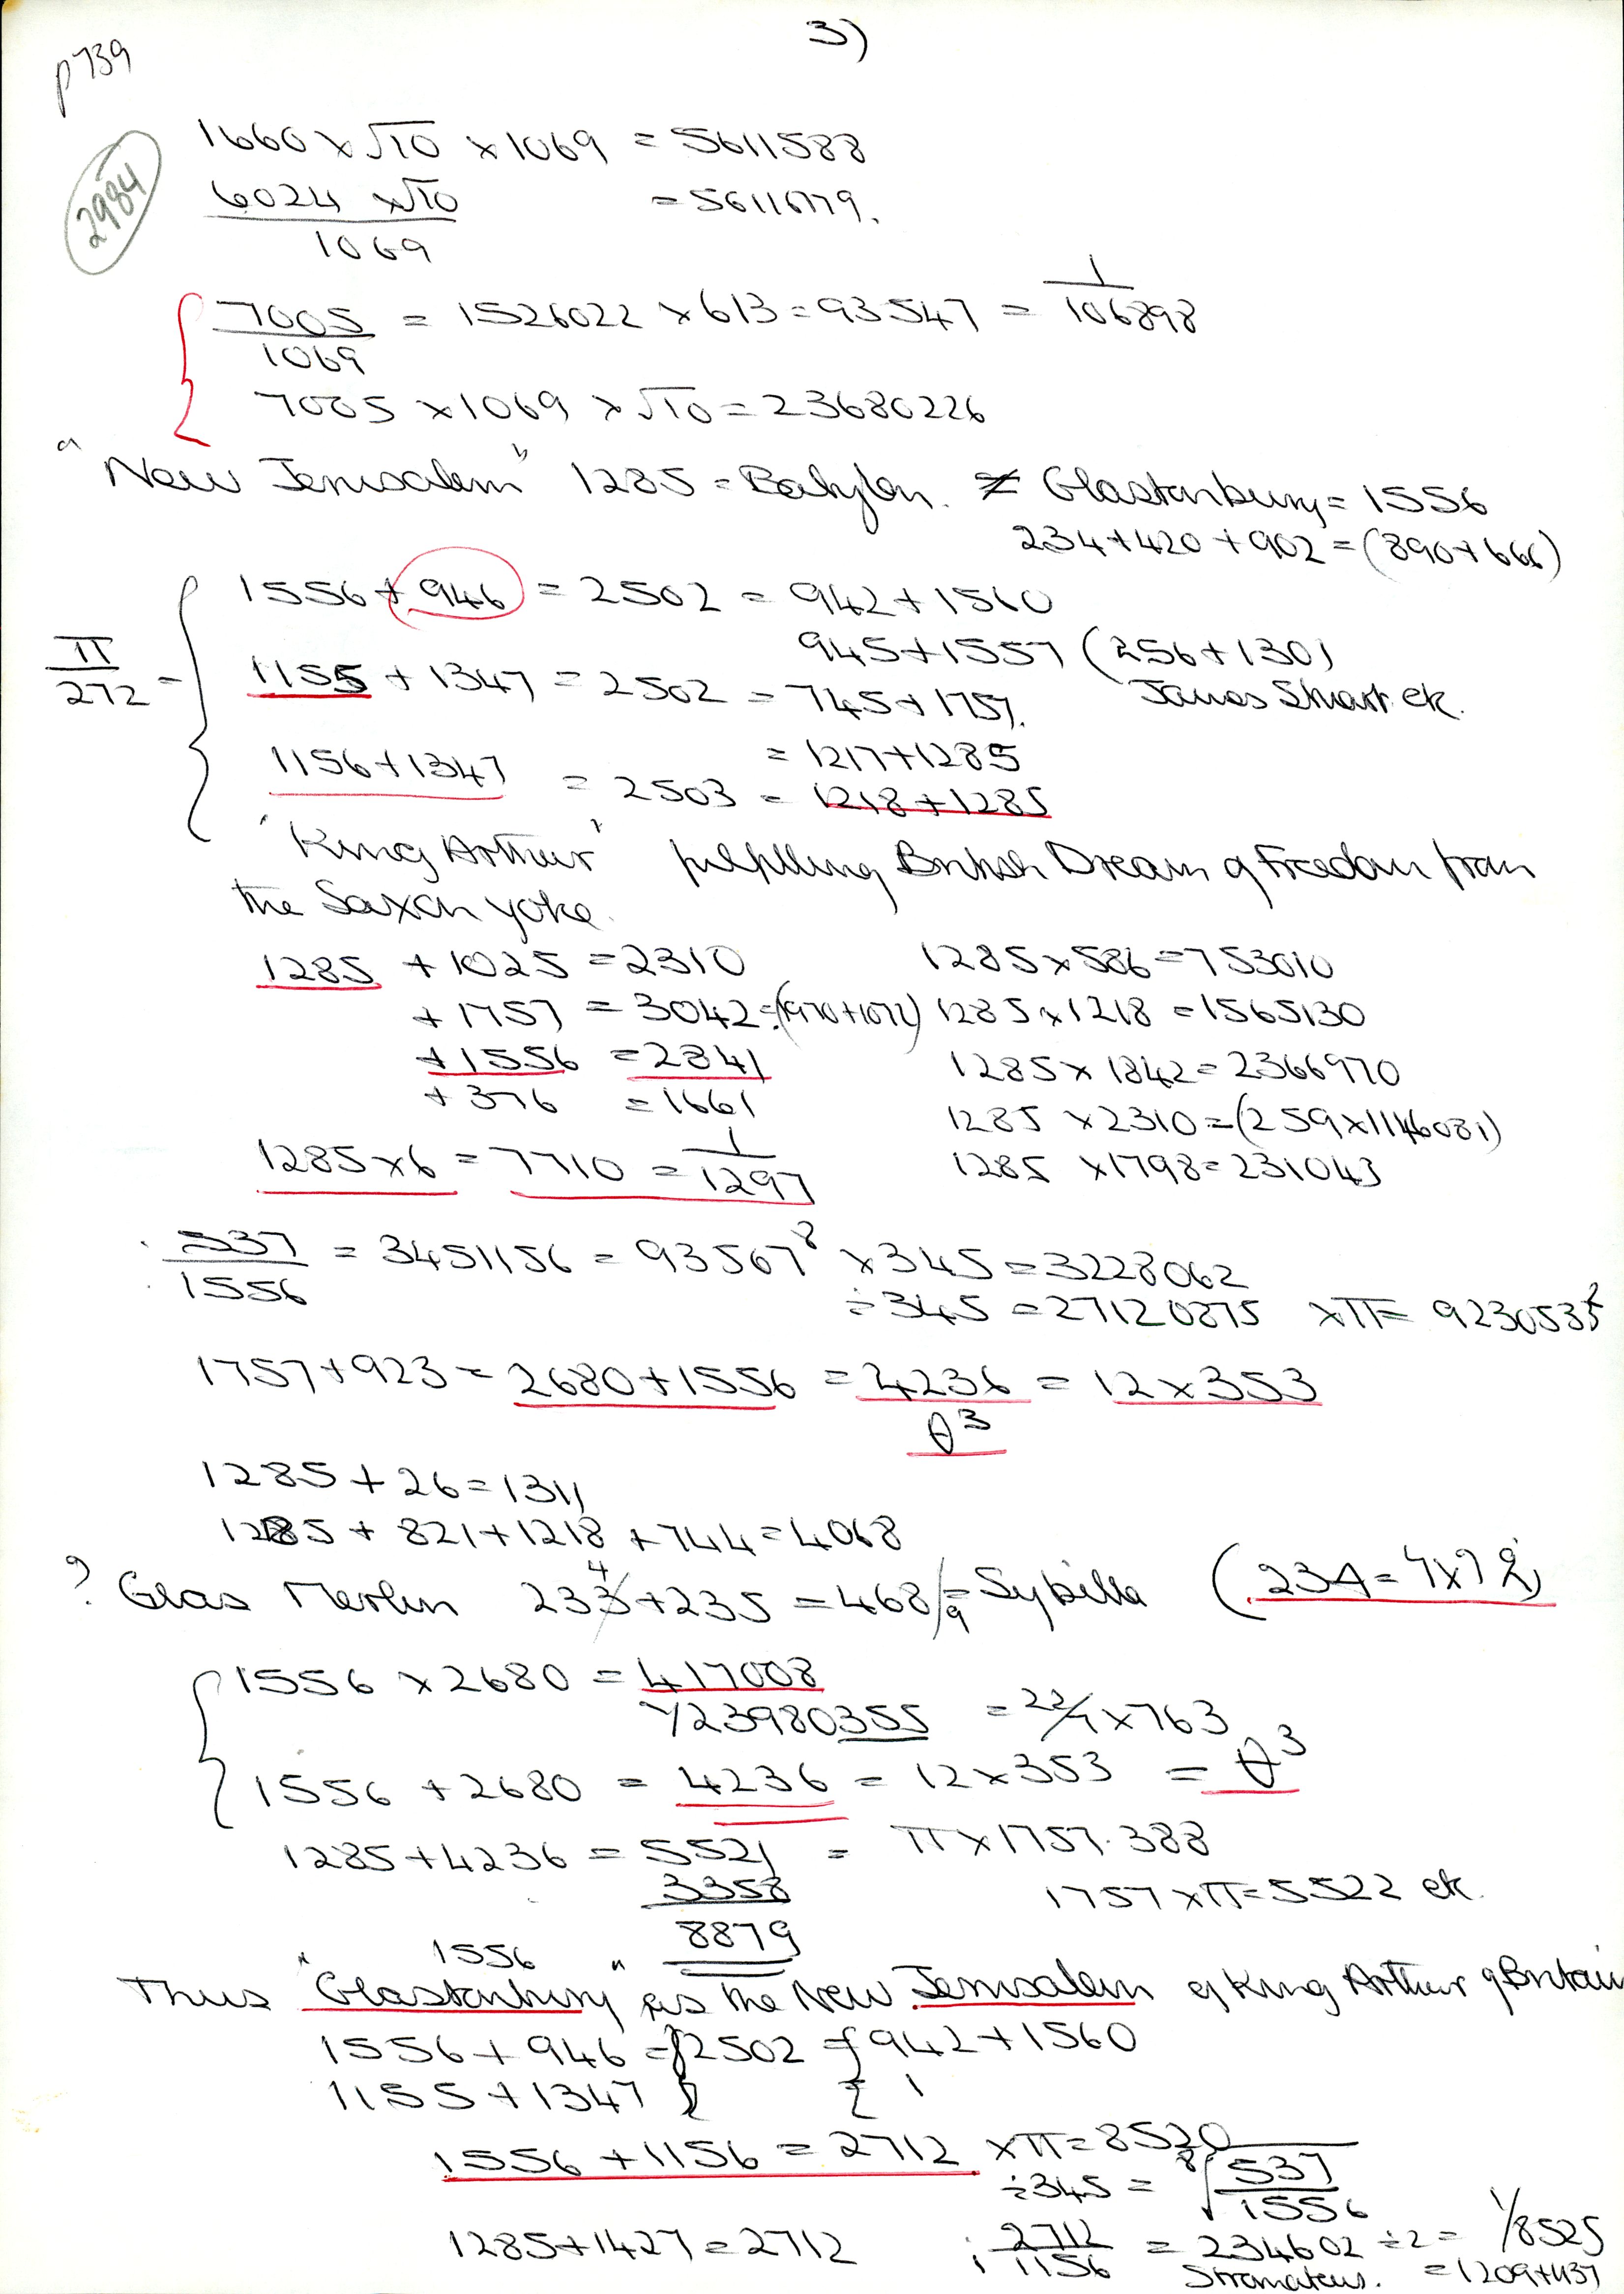 3)
p739
2984
1660 × √10 × 1069 = 5611588
6024 × √10 / 1069 = 56116779.
7005 / 1069 = 1526022 × 613 = 93547 = 1 / 106898
7005 × 1069 × √10 = 23680226
"New Jerusalem" 1285 = Babylon. Glastonbury = 1556
234 + 420 + 902 = (890 + 666)
1556 + 946 = 2502 = 942 + 1560
945 + 1557 (256 + 1301
π / 272 =
1155 + 1347 = 2502 = 745 + 1757.
James Stuart etc.
= 1217 + 1285
1156 + 1347 = 2503 = 1218 + 1285
'King Arthur' fulfilling British Dream of Freedom from
the Saxon yoke.
1285 + 1025 = 2310 1285 × 586 = 753010
+ 1757 = 3042 = (1970 + 1072) 1285 × 1218 = 1565130
+ 1556 = 2841 1285 × 1842 = 2366970
+ 376 = 1661 1285 × 2310 = (259 × 1146081)
1285 × 6 = 7710 = 1 / 1297 1285 × 1798 = 231043
537 / 1556 = 3451156 = 93567⁸ × 345 = 3228062
÷ 345 = 27120875 × π =
1757 + 923 = 2680 + 1556 = 4236 = 12 × 353
θ³
1285 + 26 = 1311
1285 + 821 + 1218 + 744 = 4068
? Glas Merlin 234 + 235 = 468/9 = Sybille (234 =
1556 × 2680 = 417008
1/23980355 = 22/7 × 763
1556 + 2680 = 4236 = 12 × 353 = θ³
1285 + 4236 = 5521 = π × 1757.388
3358 1757 × π = 5522 etc.
8879
1556
Thus "Glastonbury" as the New Jerusalem of King Arthur of Britain
1556 + 946 = 2502 = 942 + 1560
1155 + 1347
1556 + 1156 = 2712 × π = 8520
÷ 345 = ⁸√537 / 1556
1285 + 1427 = 2712 2712 / 1156 = 234602 ÷ 2 = 1/8525
Stromateus. = 1209 + 437